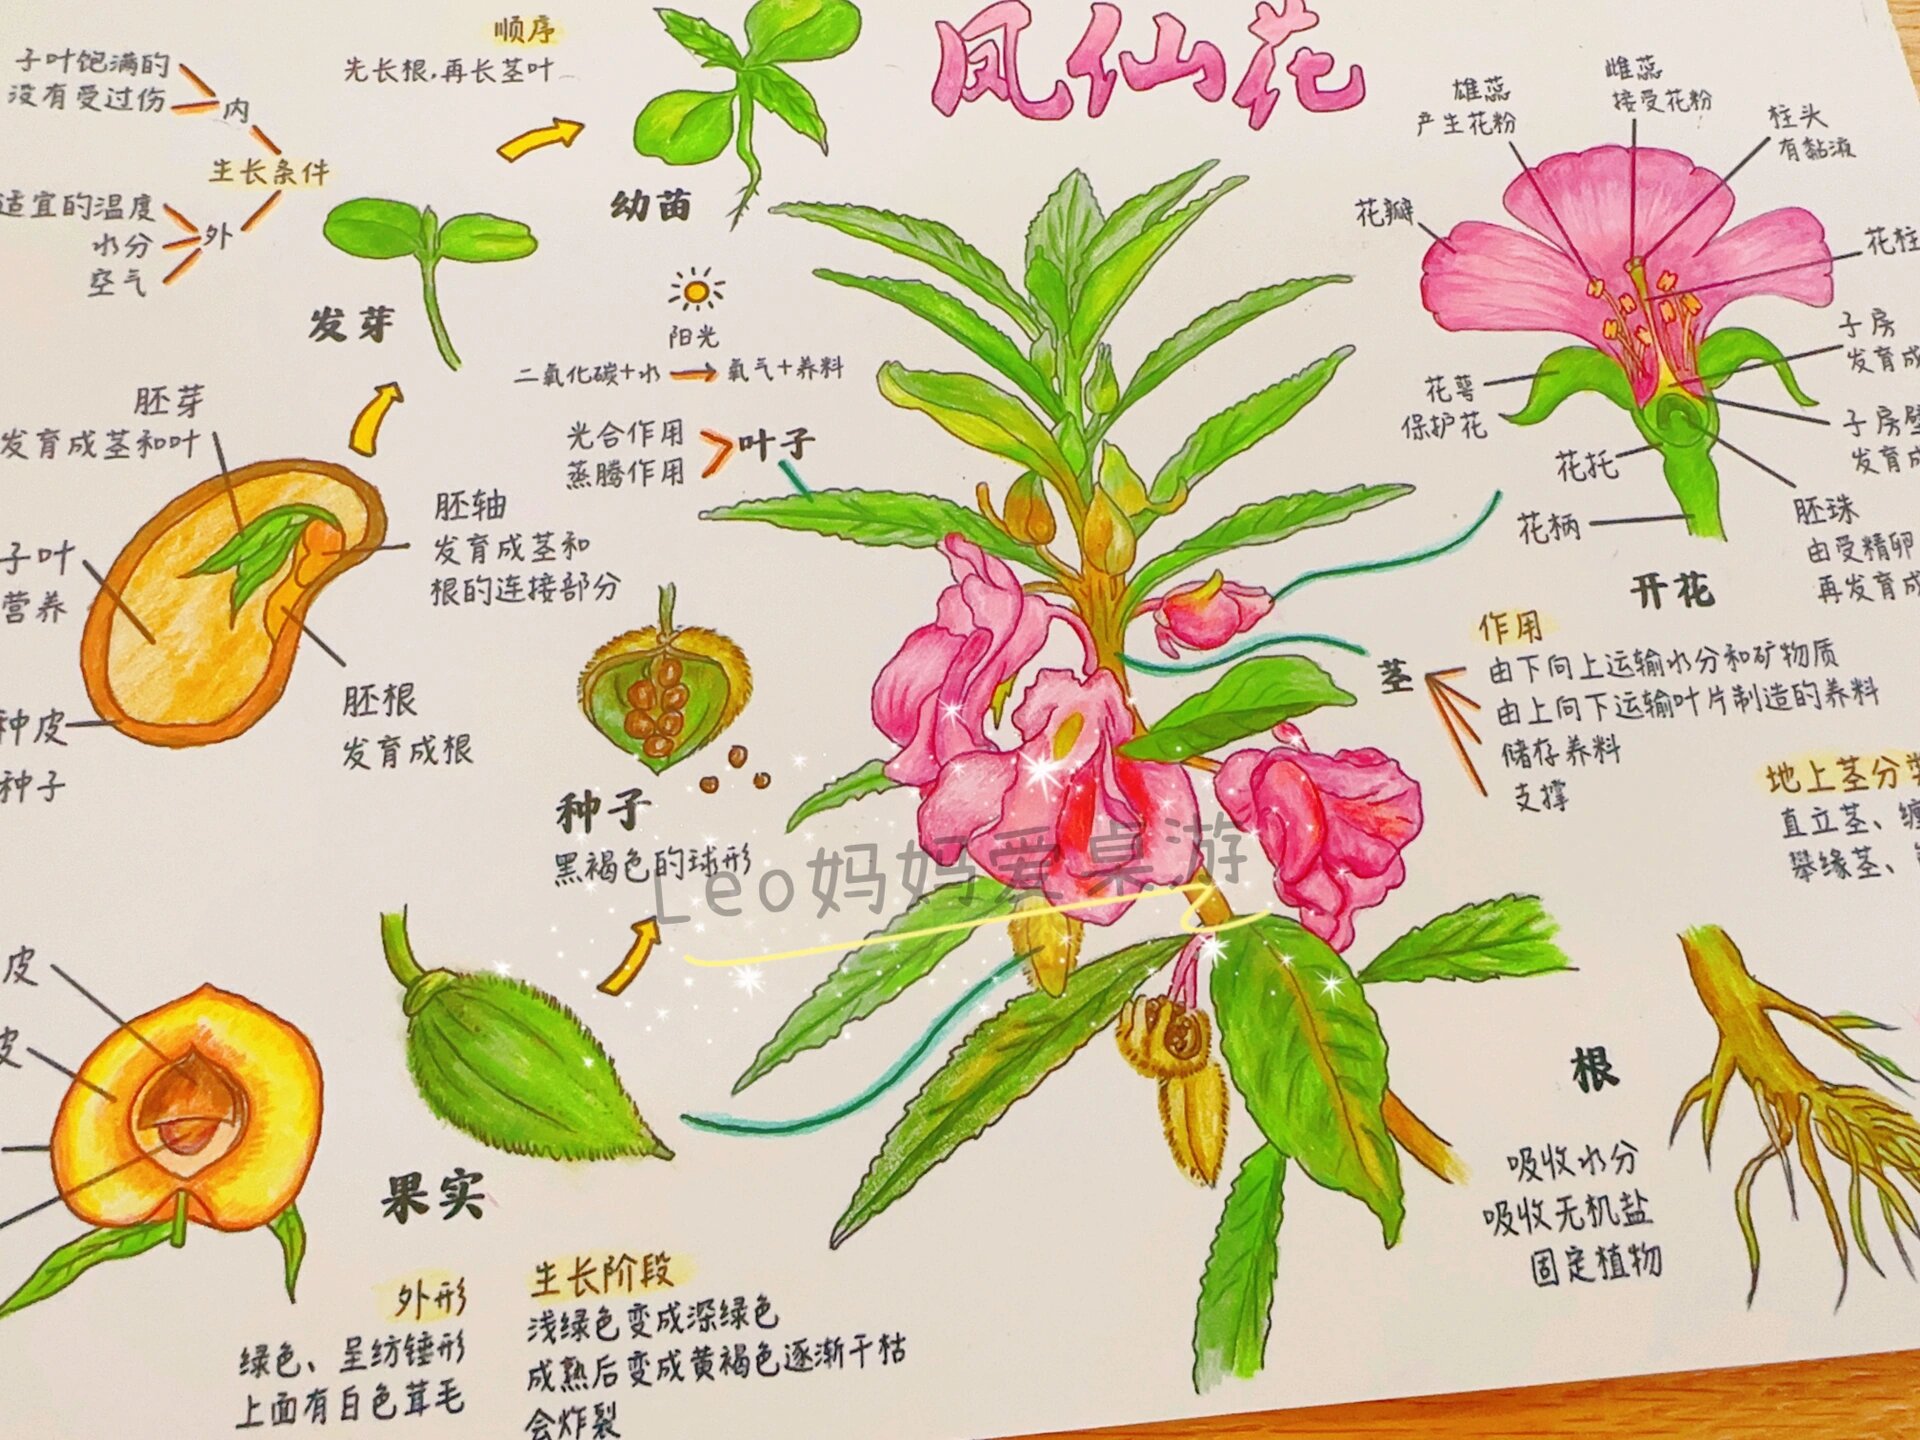 凤仙花
顺序
先长根,再长茎叶
子叶饱满的
没有受过伤
内
生长条件
适宜的温度
水分
空气
外
幼苗
发芽
阳光
二氧化碳+水
氧气+养料
光合作用
蒸腾作用
叶子
胚芽
发育成茎和叶
子叶
营养
胚轴
发育成茎和
根的连接部分
胚根
发育成根
种皮
种子
种子
黑褐色的球形
Leo妈妈爱桌游
皮
皮
果实
外形
绿色、呈纺锤形
上面有白色茸毛
生长阶段
浅绿色变成深绿色
成熟后变成黄褐色逐渐干枯
会炸裂
雄蕊
产生花粉
雌蕊
接受花粉
柱头
有黏液
花瓣
花柱
子房
发育成
花萼
保护花
子房壁
发育成
花托
花柄
胚珠
由受精卵
再发育成
开花
作用
茎
由下向上运输水分和矿物质
由上向下运输叶片制造的养料
储存养料
支撑
地上茎分类
直立茎、缠
攀缘茎、
根
吸收水分
吸收无机盐
固定植物